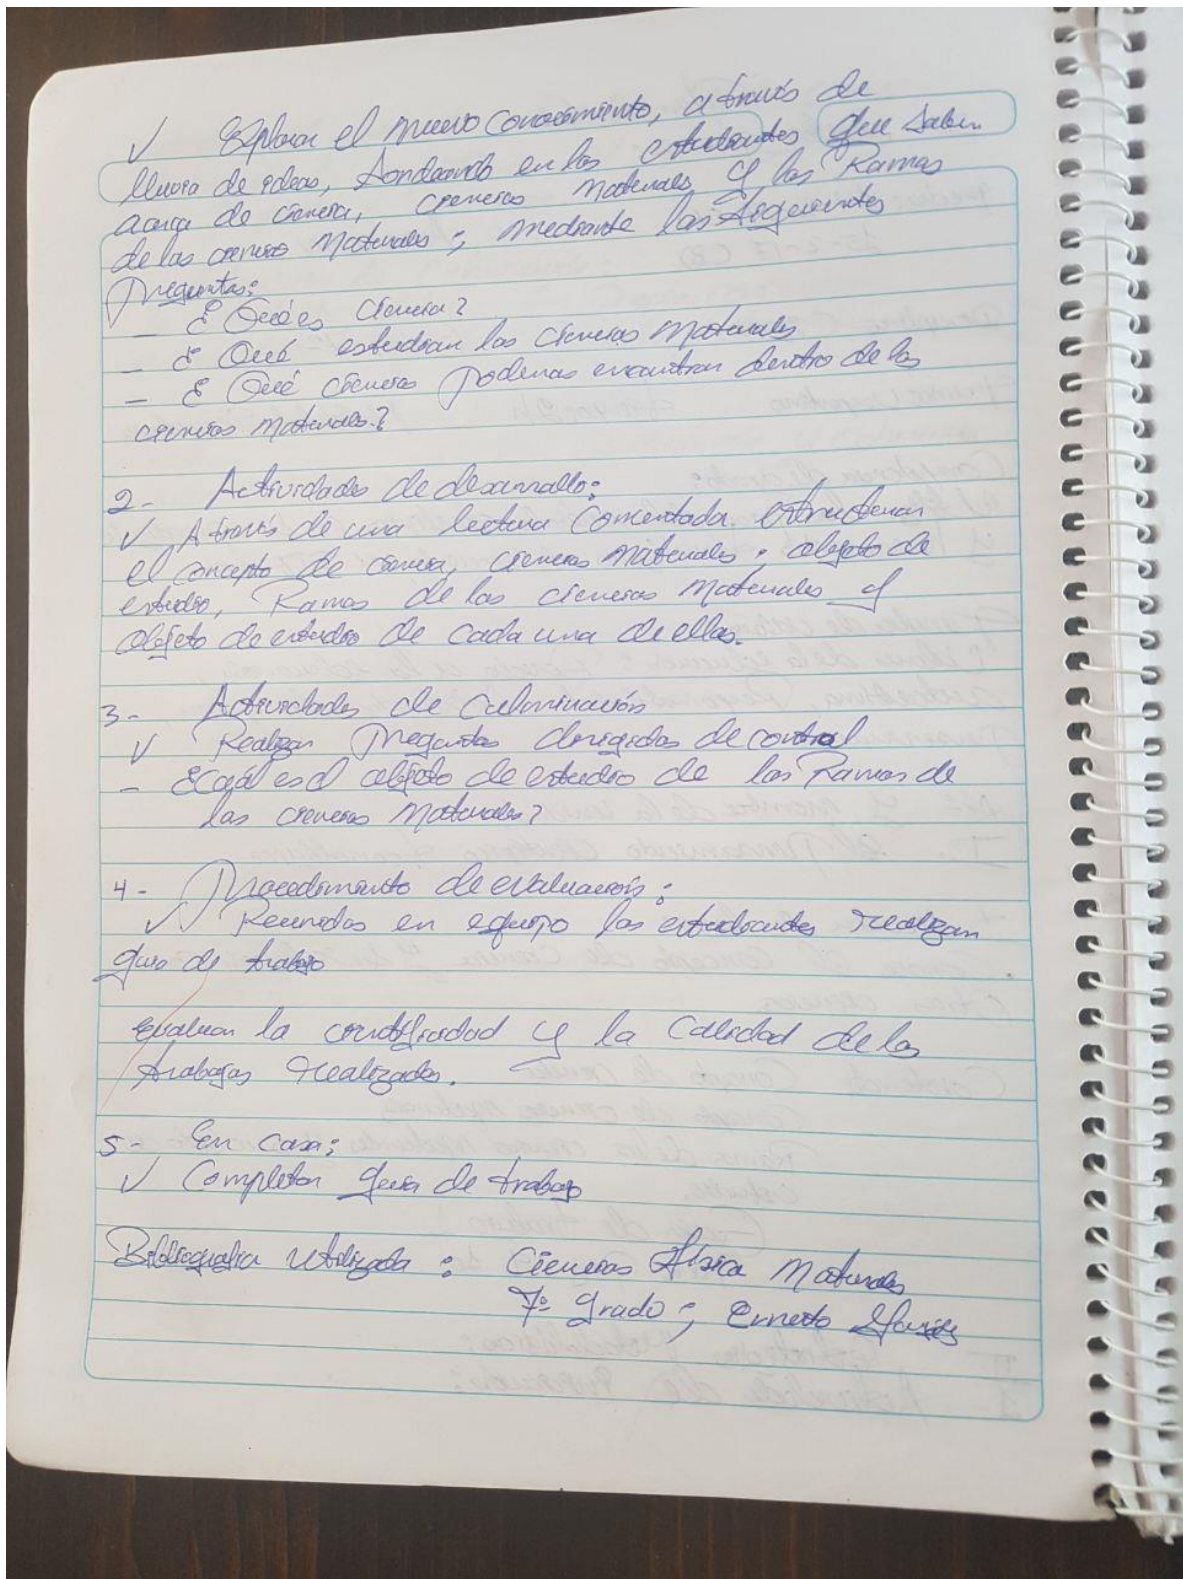 ✓ Explorar el nuevo conocimiento, a través de
lluvia de ideas, sondeando en los estudiantes que saben
acerca de ciencia, ciencias naturales y las Ramas
de las ciencias Naturales; mediante las siguientes
Preguntas:
- ¿Qué es Ciencia?
- ¿Qué estudian las Ciencias Naturales
- ¿Qué ciencias Podemos encontrar dentro de las
ciencias Naturales?
2- Actividades de desarrollo:
✓ A través de una lectura Comentada estructuran
el concepto de ciencia, ciencias naturales, objeto de
estudio, Ramas de las ciencias Naturales y
objeto de estudio de cada una de ellas.
3- Actividades de Culminación
✓ Realizan Preguntas dirigidas de control
- ¿Cuál es el objeto de estudio de las Ramas de
las ciencias Naturales?
4- Procedimiento de evaluación:
✓ Reunidos en equipo los estudiantes realizan
guia de trabajo
Evaluar la cientificidad y la Calidad de los
trabajos realizados.
5- En casa:
✓ Completar guia de trabajo
Bibliografia utilizada: Ciencias Física Naturales
7º grado; Ernesto